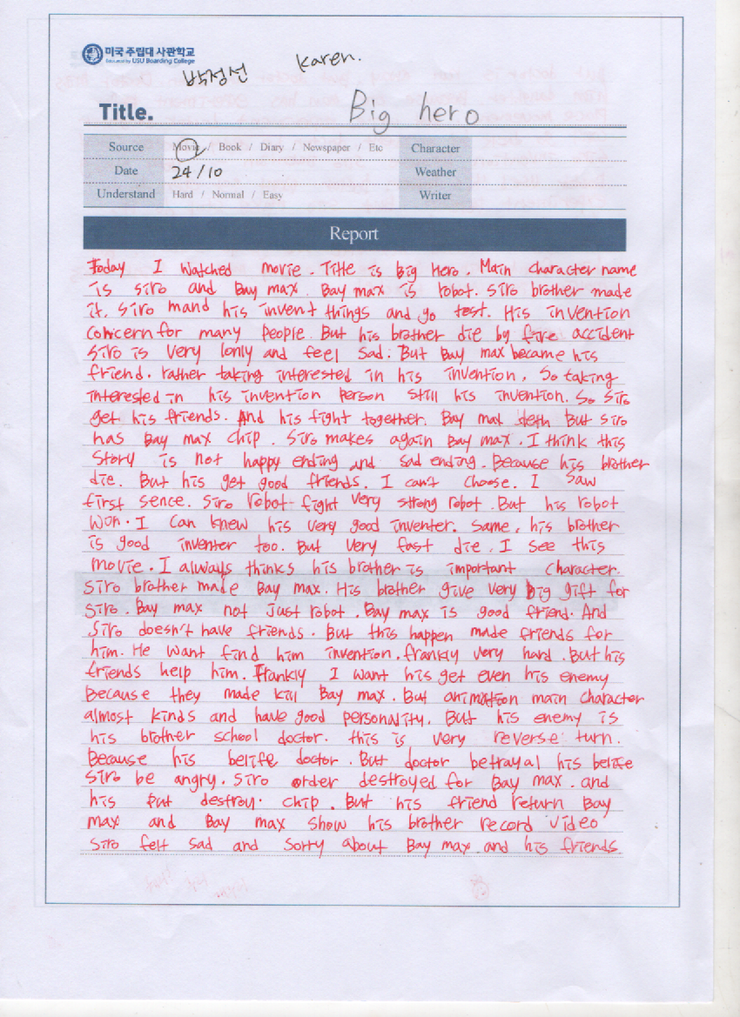 미국 주립대 사관학교
USU Boarding College
박정선 Karen.
Title. Big hero
Source Movie / Book / Diary / Newspaper / Etc Character
Date 24/10 Weather
Understand Hard / Normal / Easy Writer
Report
Today I watched movie. Title is big Hero. Main character name
is siro and Bay max. Bay max is robot. siro brother made
it. siro mand his invent things and go test. His invention
concern for many people. But his brother die by fire accident
siro is very lonly and feel sad. But Bay max became his
friend. rather taking interested in his invention, So taking
interested in his invention person still his invention. So siro
get his friends. And his fight together. Bay max deth But siro
has Bay max chip. siro makes again Bay max. I think this
story is not happy ending and sad ending. Because his brother
die. But his get good friends. I can't choose. I saw
first sence. siro robot fight very strong robot. But his robot
won. I can knew his very good inventer. same, his brother
is good inventer too. But very fast die. I see this
movie. I always thinks his brother is important character.
siro brother made Bay max. His brother give very big gift for
siro. Bay max not just robot. Bay max is good friend. And
siro doesn't have friends. But this happen made friends for
him. He want find him invention. frankly very hard. But his
friends help him. Frankly I want his get even his enemy
Because they made kill Bay max. But animation main character
almost kinds and have good personality. But his enemy is
his brother school doctor. this is very reverse turn.
Because his belife doctor. But doctor betrayal his belife
siro be angry. siro order destroyed for Bay max. and
his put destroy. chip. But his friend return Bay
max and Bay max show his brother record video
siro felt sad and sorry about Bay max and his friends